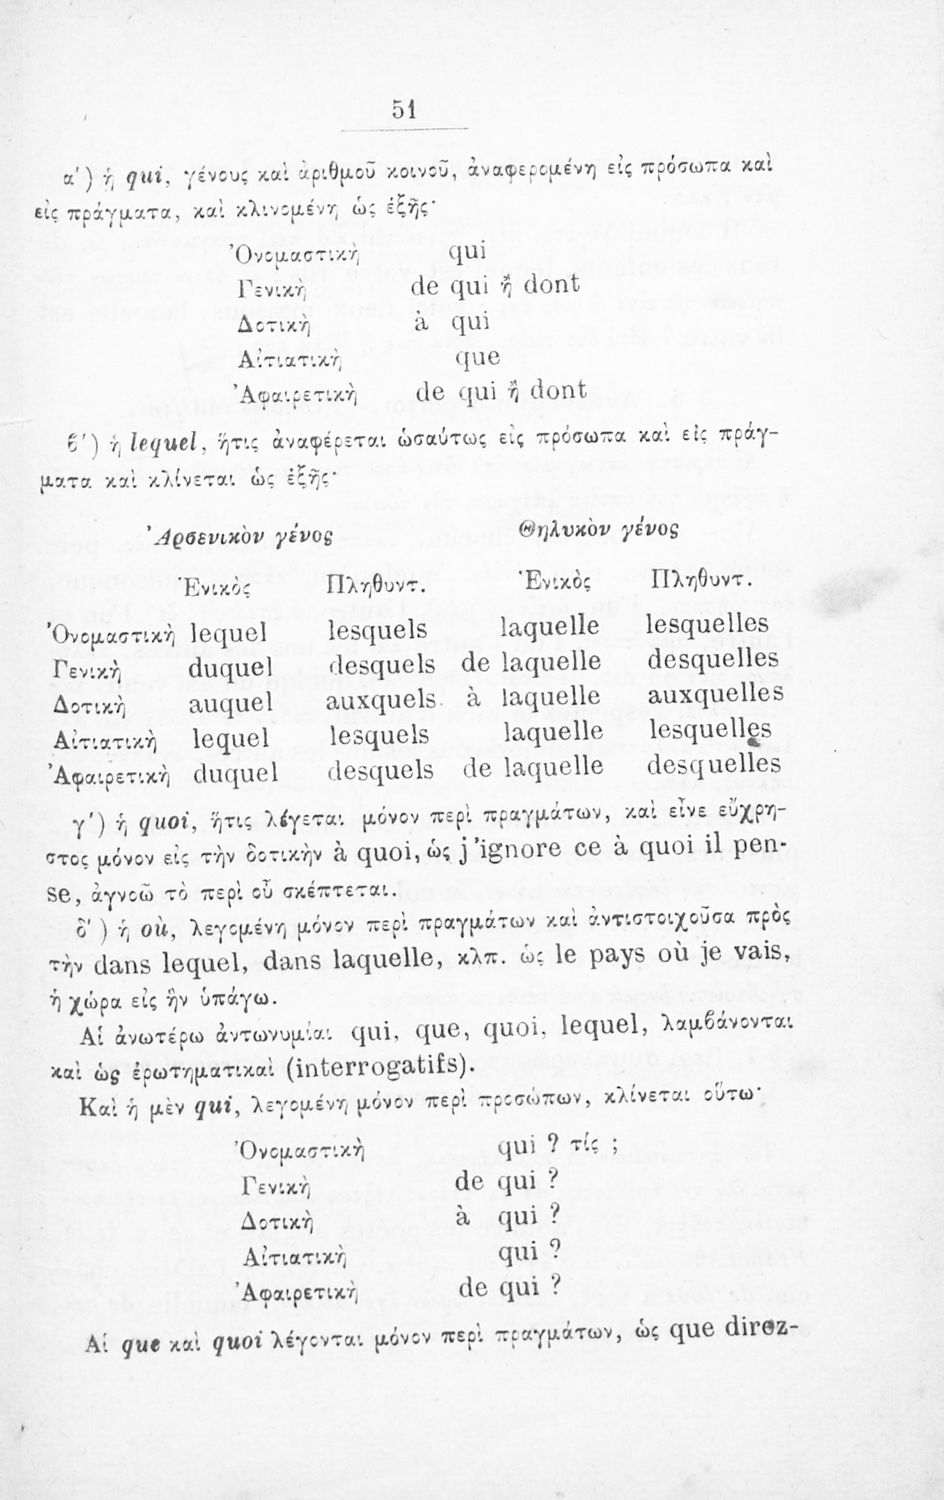 51
α΄) ἡ qui, γένους καὶ ἀριθμοῦ κοινοῦ, ἀναφερομένη εἰς πρόσωπα καὶ
εἰς πράγματα, καὶ κλινομένη ὡς ἑξῆς·
Ὀνομαστικὴ qui
Γενικὴ de qui ἢ dont
Δοτικὴ à qui
Αἰτιατικὴ que
Ἀφαιρετικὴ de qui ἢ dont
ϐ΄) ἡ lequel, ἥτις ἀναφέρεται ὡσαύτως εἰς πρόσωπα καὶ εἰς πράγ-
ματα καὶ κλίνεται ὡς ἑξῆς·
Ἀρσενικὸν γένος Θηλυκὸν γένος
Ἑνικὸς Πληθυντ. Ἑνικὸς Πληθυντ.
Ὀνομαστικὴ lequel lesquels laquelle lesquelles
Γενικὴ duquel desquels de laquelle desquelles
Δοτικὴ auquel auxquels à laquelle auxquelles
Αἰτιατικὴ lequel lesquels laquelle lesquelles
Ἀφαιρετικὴ duquel desquels de laquelle desquelles
γ΄) ἡ quoi, ἥτις λέγεται μόνον περὶ πραγμάτων, καὶ εἶνε εὔχρη-
στος μόνον εἰς τὴν δοτικὴν à quoi, ὡς j'ignore ce à quoi il pen-
se, ἀγνοῶ τὸ περὶ οὗ σκέπτεται.
δ΄) ἡ où, λεγομένη μόνον περὶ πραγμάτων καὶ ἀντιστοιχοῦσα πρὸς
τὴν dans lequel, dans laquelle, κλπ. ὡς le pays où je vais,
ἡ χώρα εἰς ἣν ὑπάγω.
Αἱ ἀνωτέρω ἀντωνυμίαι qui, que, quoi, lequel, λαμϐάνονται
καὶ ὡς ἐρωτηματικαὶ (interrogatifs).
Καὶ ἡ μὲν qui, λεγομένη μόνον περὶ προσώπων, κλίνεται οὕτω·
Ὀνομαστικὴ qui ? τίς ;
Γενικὴ de qui ?
Δοτικὴ à qui ?
Αἰτιατικὴ qui ?
Ἀφαιρετικὴ de qui ?
Αἱ que καὶ quoi λέγονται μόνον περὶ πραγμάτων, ὡς que direz-